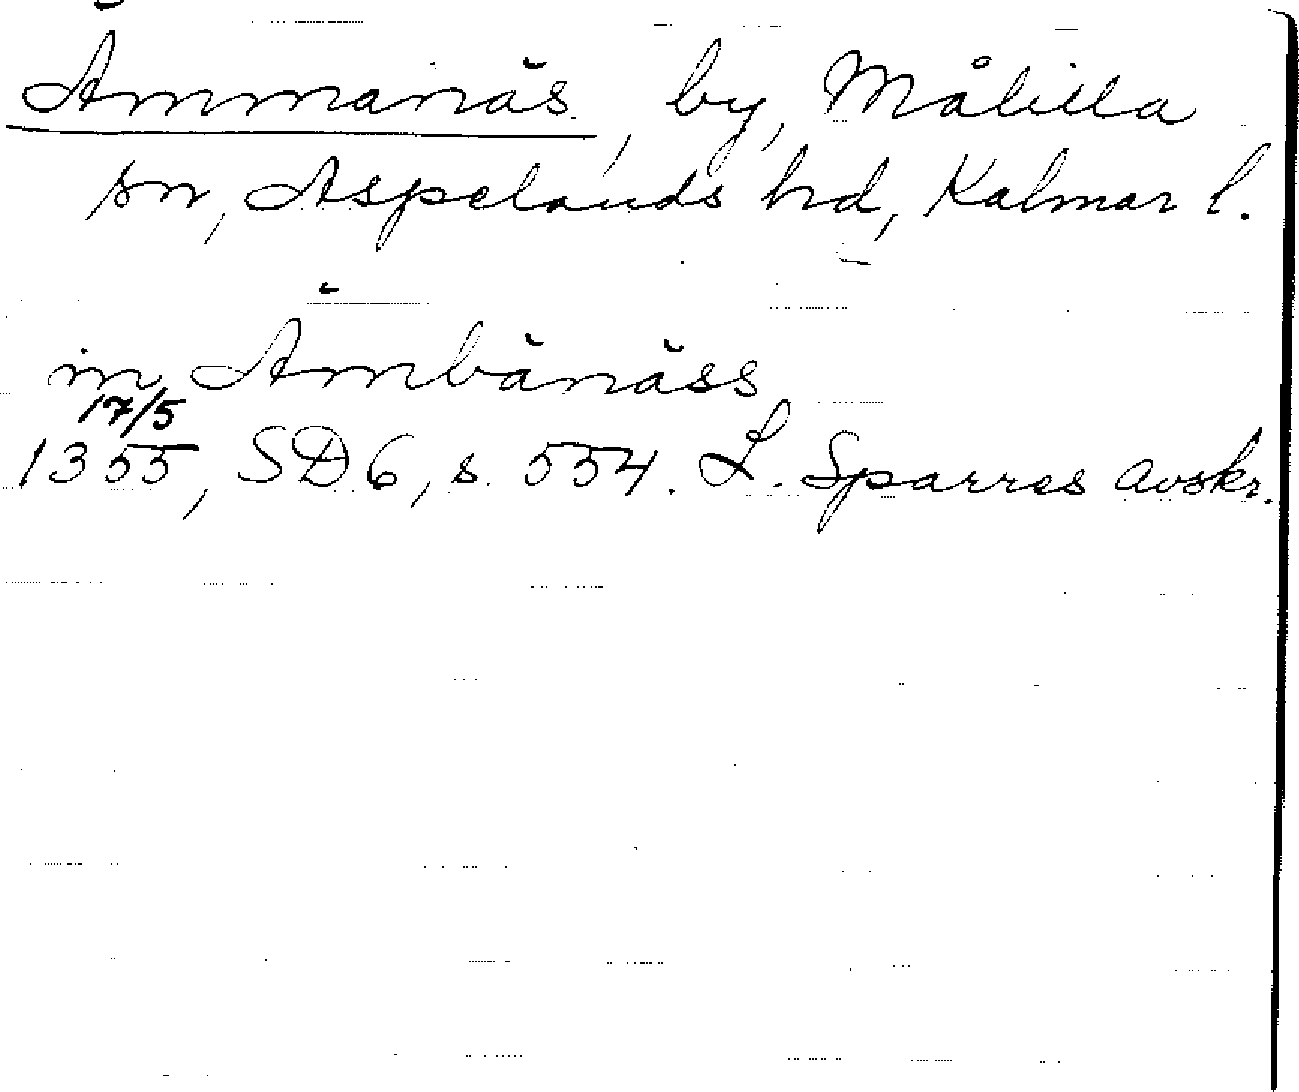 Ämmanäs, by, Målilla
sn, Aspelands hd, Kalmar l.
in Ämbänäss
17/5
1355, SD 6, s. 554. L. Sparres avskr.